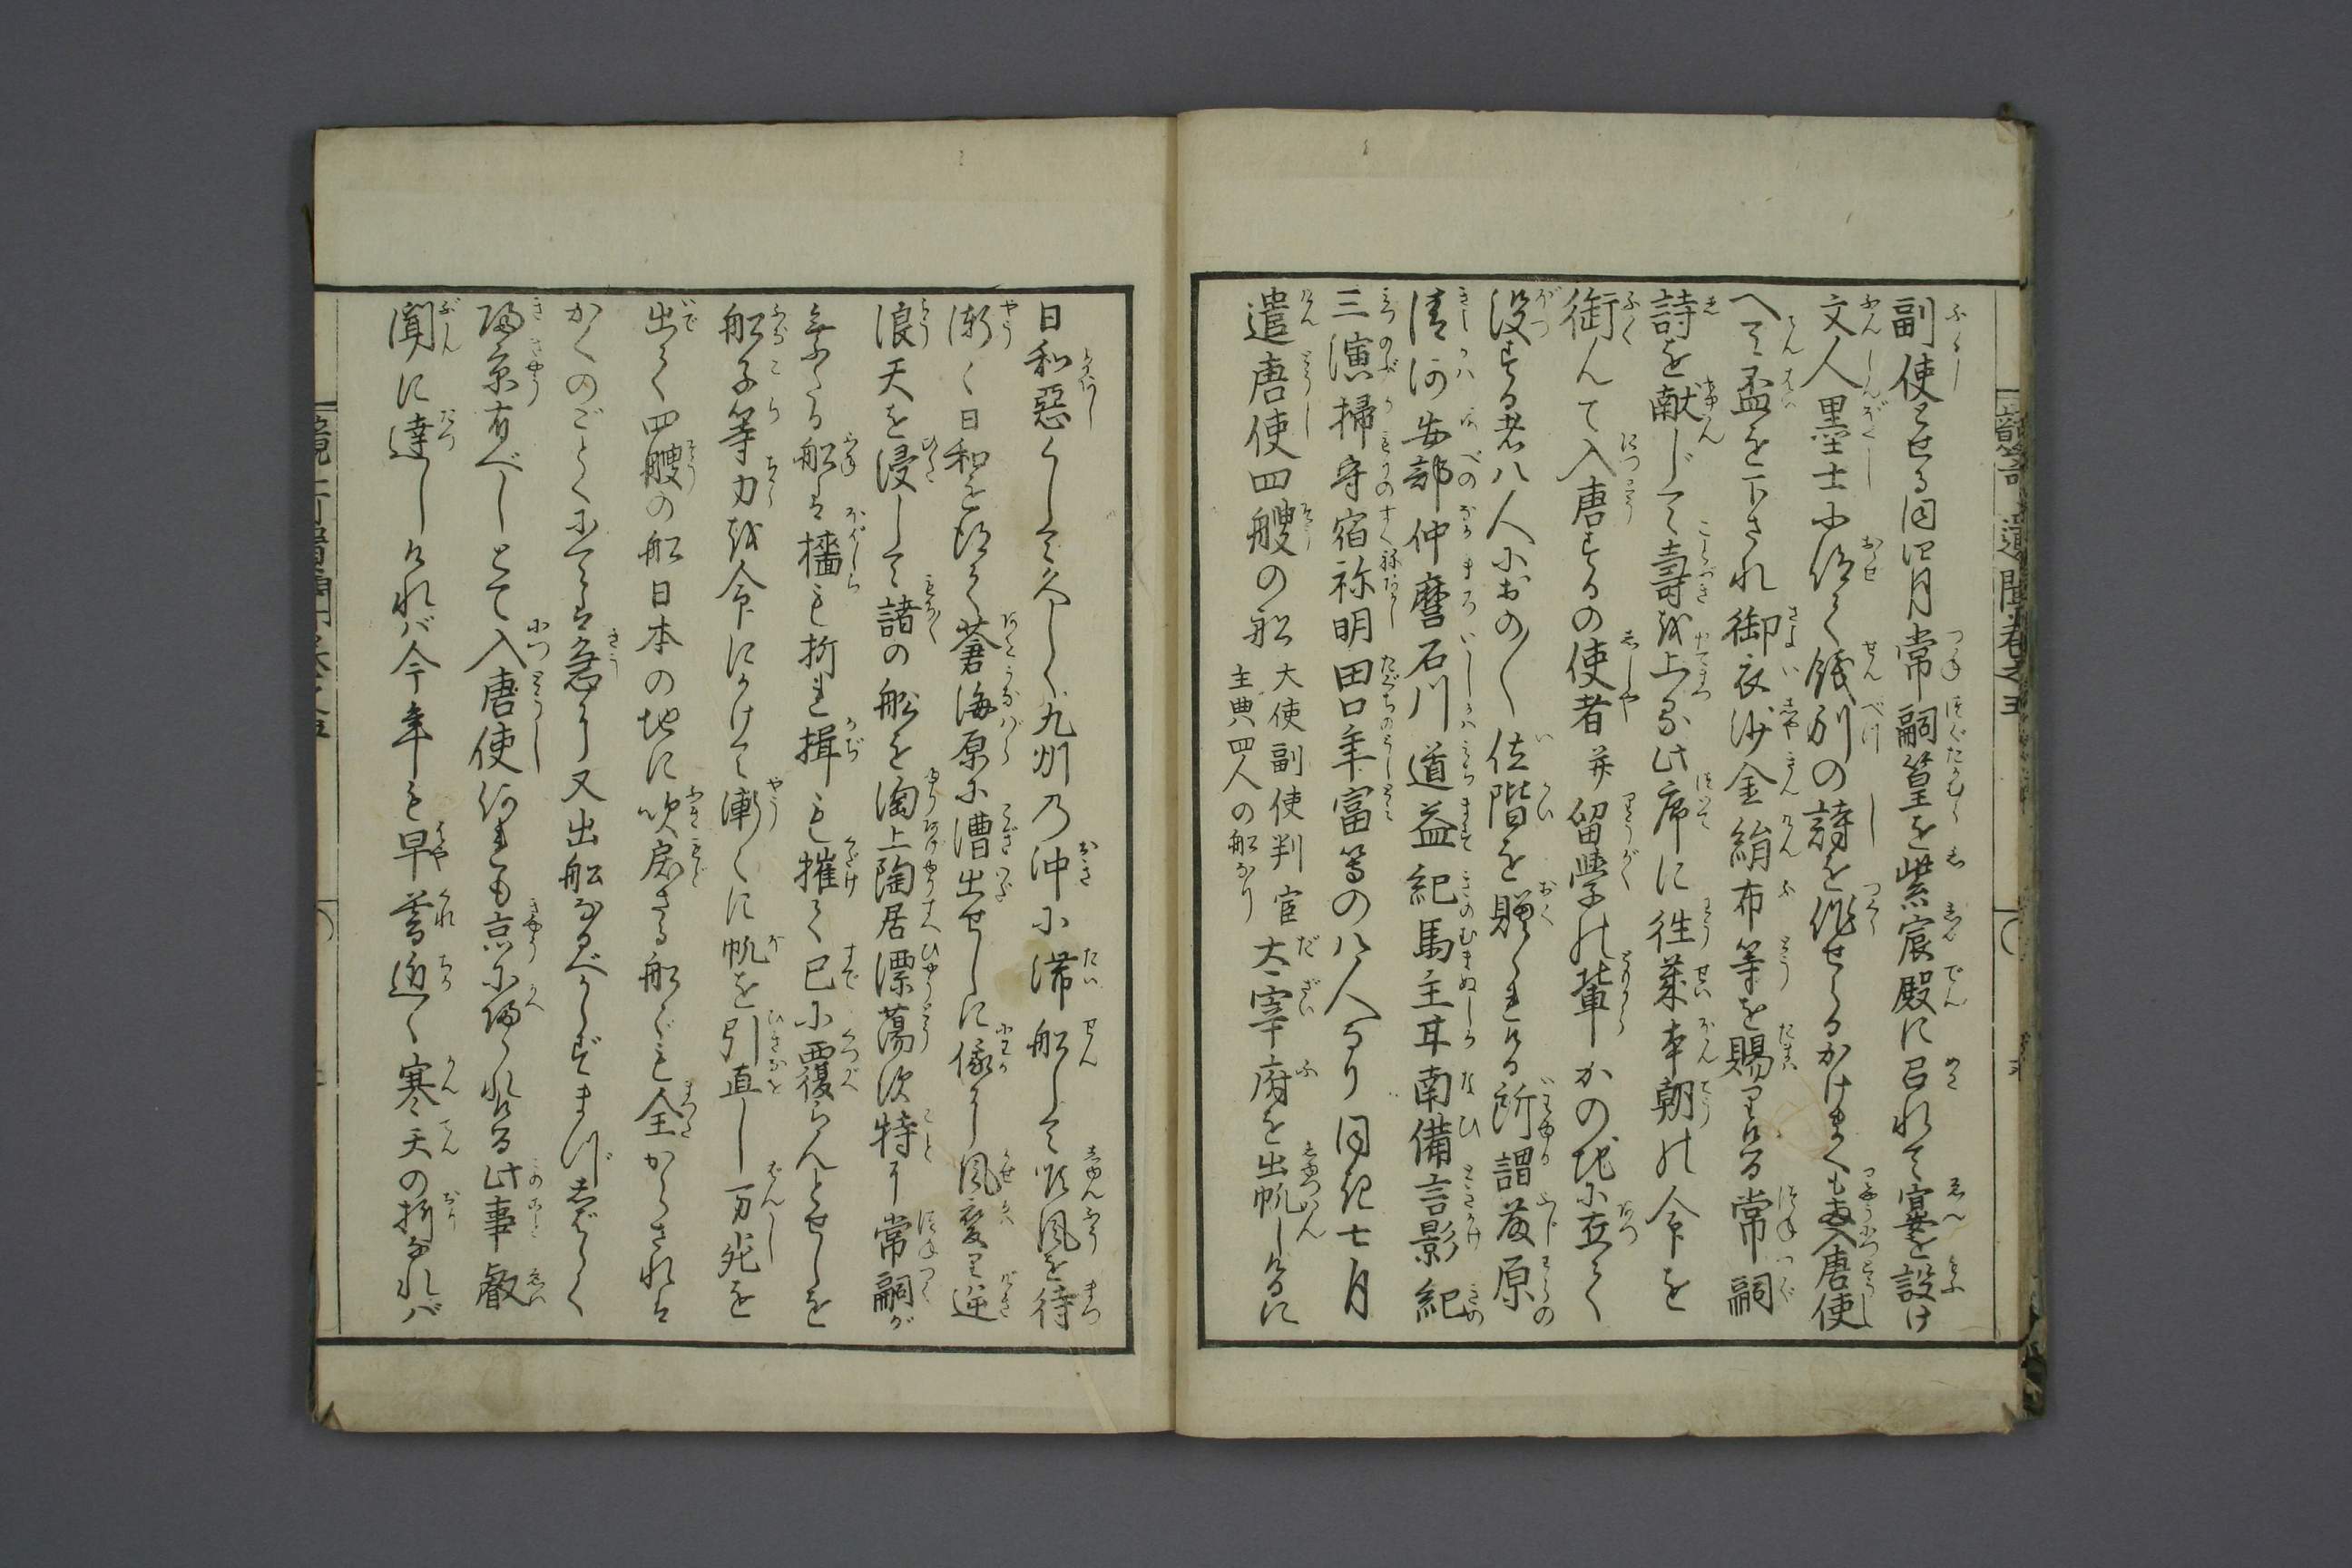 副使とせる同四月常嗣篁を紫宸殿に召れて宴を設け
文人墨士に仰て餞別の詩を作せらるかけまくも両入唐使
へも盃を下され御衣沙金絹布等を賜りける常嗣
詩を献じて壽を上る此席に往歳本朝の令を
銜んて入唐するの使者并留學の輩かの地に在て
没する者八人におの〳〵位階を贈られける所謂藤原
清河安部仲麿石川道益紀馬主甘南備言影紀
三濱掃守宿祢明田口年富等の八人なり同年七月
遣唐使四艘の船
大使副使判官
主典四人の船なり
大宰府を出帆しけるに
日和惡くして久しく九州乃沖に滞船して順風を待
漸く日和を得て蒼海原に漕出せしに俄にし風変り逆
浪天を浸して諸の船を淘上陶居漂蕩す特に常嗣が
乗たる船は檣も折れ揖も摧て已に覆らんとせしを
船子等力を命にかけて漸くに帆を引直し万死を
出て四艘の船日本の地に吹戻さる船ども全からされは
かくのごとくにては急に又出船なるべからずまづしばらく
帰京有べしとて入唐使何れも京に帰られける此事叡
聞に達しければ今年も早暮近く寒天の折なれば